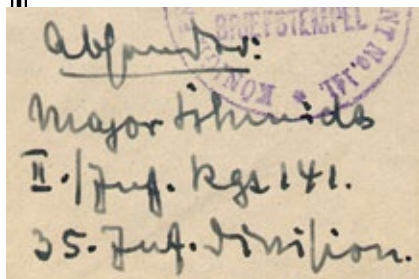 BRIEFSTEMPEL
KÖNI NT No. 141. *
Absender:
Major Schmidt
II./Inf. Rgt 141.
35. Inf. Division.